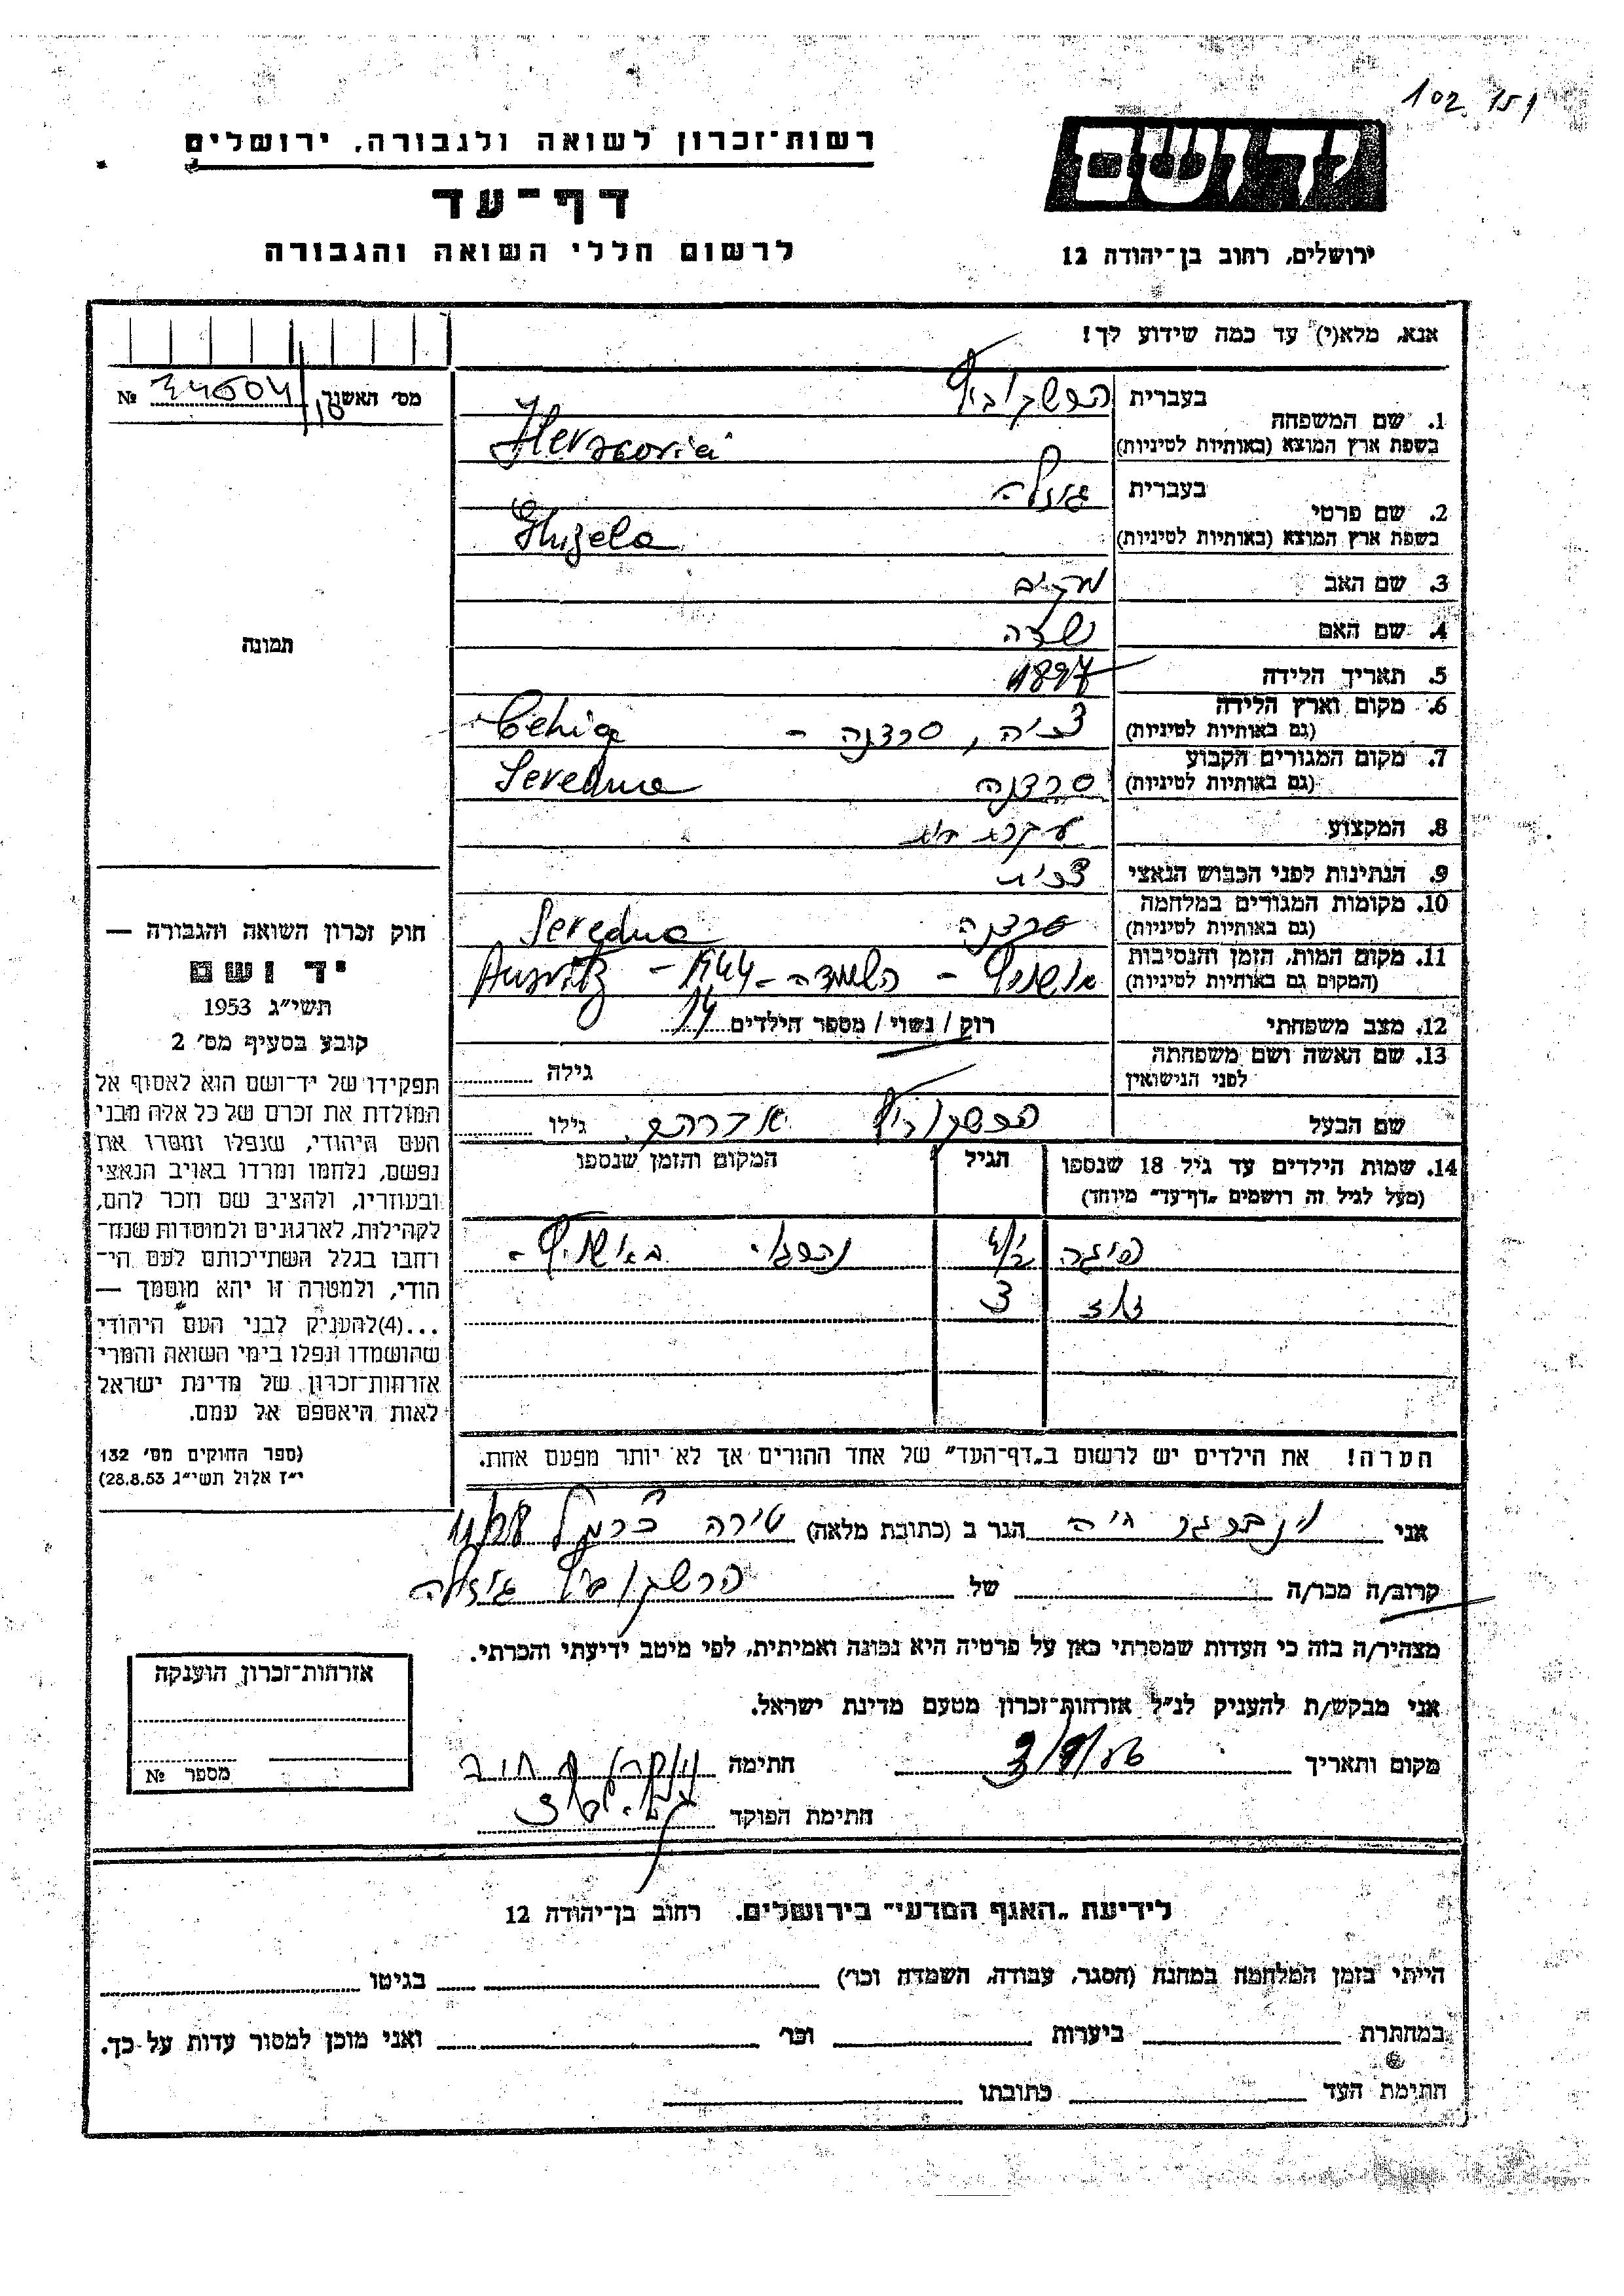 102
רשות־זכרון לשואה ולגבורה, ירושלים
יד ושם
דף־עד
לרשום חללי השואה והגבורה
ירושלים, רחוב בן־יהודה 12
אנא, מלא(י) עד כמה שידוע לך!
מס' האשנר № 34604
1. שם המשפחה
בעברית הרשקוביץ
בשפת ארץ המוצא (באותיות לטיניות) Herscovici
2. שם פרטי
בעברית גיזלה
בשפת ארץ המוצא (באותיות לטיניות) Ghizela
3. שם האב
4. שם האם
5. תאריך הלידה 1897
6. מקום וארץ הלידה
(גם באותיות לטיניות) צ'כיה, סרדנה - Cehia
7. מקום המגורים הקבוע
(גם באותיות לטיניות) סרדנה Seredna
8. המקצוע עקרת בית
9. הנתינות לפני הכבוש הנאצי צ'כית
10. מקומות המגורים במלחמה
(גם באותיות לטיניות) סרדנה Seredna
11. מקום המות, הזמן והנסיבות
(המקום גם באותיות לטיניות) אושוויץ - השמדה - 1944 -
12. מצב משפחתי רוק / נשוי / מספר הילדים 14
13. שם האשה ושם משפחתה
לפני הנישואין גילה
שם הבעל הרשקוביץ אברהם גילו
14. שמות הילדים עד גיל 18 שנספו
(מעל לגיל זה רושמים „דף־עד" מיוחד)
הגיל
המקום והזמן שנספו
באושוויץ -
3
הערה! את הילדים יש לרשום ב„דף־העד" של אחד ההורים אך לא יותר מפעם אחת.
תמונה
חוק זכרון השואה והגבורה —
יד ושם
תשי"ג 1953
קובע בסעיף מס' 2
תפקידו של יד־ושם הוא לאסוף אל
המולדת את זכרם של כל אלה מבני
העם היהודי, שנפלו ומסרו את
נפשם, נלחמו ומרדו באויב הנאצי
ובעוזריו, ולהציב שם וזכר להם,
לקהילות, לארגונים ולמוסדות שנח־
רחבו בגלל השתייכותם לעם הי־
הודי, ולמטרה זו יהא מוסמך —
...(4)להעניק לבני העם היהודי
שהושמדו ונפלו בימי השואה והמרי
אזרחות־זכרון של מדינת ישראל
לאות היאספם אל עמם.
(ספר החוקים מס' 132
י"ז אלול תשי"ג 28.8.53)
אני וינברגר חיה הגר ב (כתובת מלאה) טירה כרמל 11/28
קרוב/ה מכר/ה של הרשקוביץ גיזלה
מצהיר/ה בזה כי העדות שמסרתי כאן על פרטיה היא נכונה ואמיתית, לפי מיטב ידיעתי והכרתי.
אני מבקש/ת להעניק לנ"ל אזרחות־זכרון מטעם מדינת ישראל.
מקום ותאריך חתימה
חתימת הפוקד
אזרחות־זכרון הוענקה
מספר №
לידיעת „האגף המדעי" בירושלים. רחוב בן־יהודה 12
הייתי בזמן המלחמה במחנה (הסגר, עבודה, השמדה וכו') בגיטו
במחתרת ביערות וכו' ואני מוכן למסור עדות על כך.
חתימת העד כתובתו